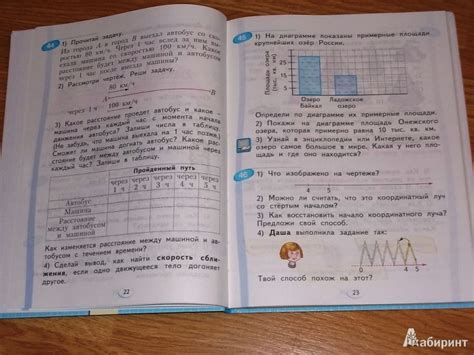 44 1) Прочитай задачу.
Из города А в город В выехал автобус со ско-
ростью 80 км/ч. Через 1 час вслед за ним вы-
ехала машина со скоростью 100 км/ч. Какое
расстояние будет между машиной и автобусом
через 1 час после выезда машины?
2) Рассмотри чертёж. Реши задачу.
80 км/ч
А В
через 1 ч 100 км/ч
3) Какое расстояние проедет автобус и какое –
машина через каждый час с момента начала
движения автобуса? Запиши числа в таблицу.
(Не забудь, что машина выехала на 1 час позже.)
Сможет ли машина догнать автобус? Какое рас-
стояние будет между автобусом и машиной через
каждый час? Запиши в таблицу.
Пройденный путь
через 1 ч через 2 ч через 3 ч через 4 ч через 5 ч
Автобус
Машина
Расстояние между автобусом и машиной
Как изменяется расстояние между машиной и ав-
тобусом с течением времени?
4) Сделай вывод, как найти скорость сбли-
жения, если одно движущееся тело догоняет
другое.
22
45 1) На диаграмме показаны примерные площади
крупнейших озёр России.
Площадь озера (тыс. кв. км)
25
15
5
Озеро Байкал
Ладожское озеро
Определи по диаграмме их примерные площади.
2) Покажи на диаграмме площадь Онежского
озера, которая примерно равна 10 тыс. кв. км.
3) Узнай в энциклопедии или Интернете, какое
озеро самое большое в мире. Какая у него пло-
щадь и где оно находится?
46 1) Что изображено на чертеже?
4 5
2) Можно ли считать, что это координатный луч
со стёртым началом?
3) Как восстановить начало координатного луча?
Предложи свой способ.
4) Даша выполнила задание так:
0 4 5
Твой способ похож на этот?
23
Лабиринт